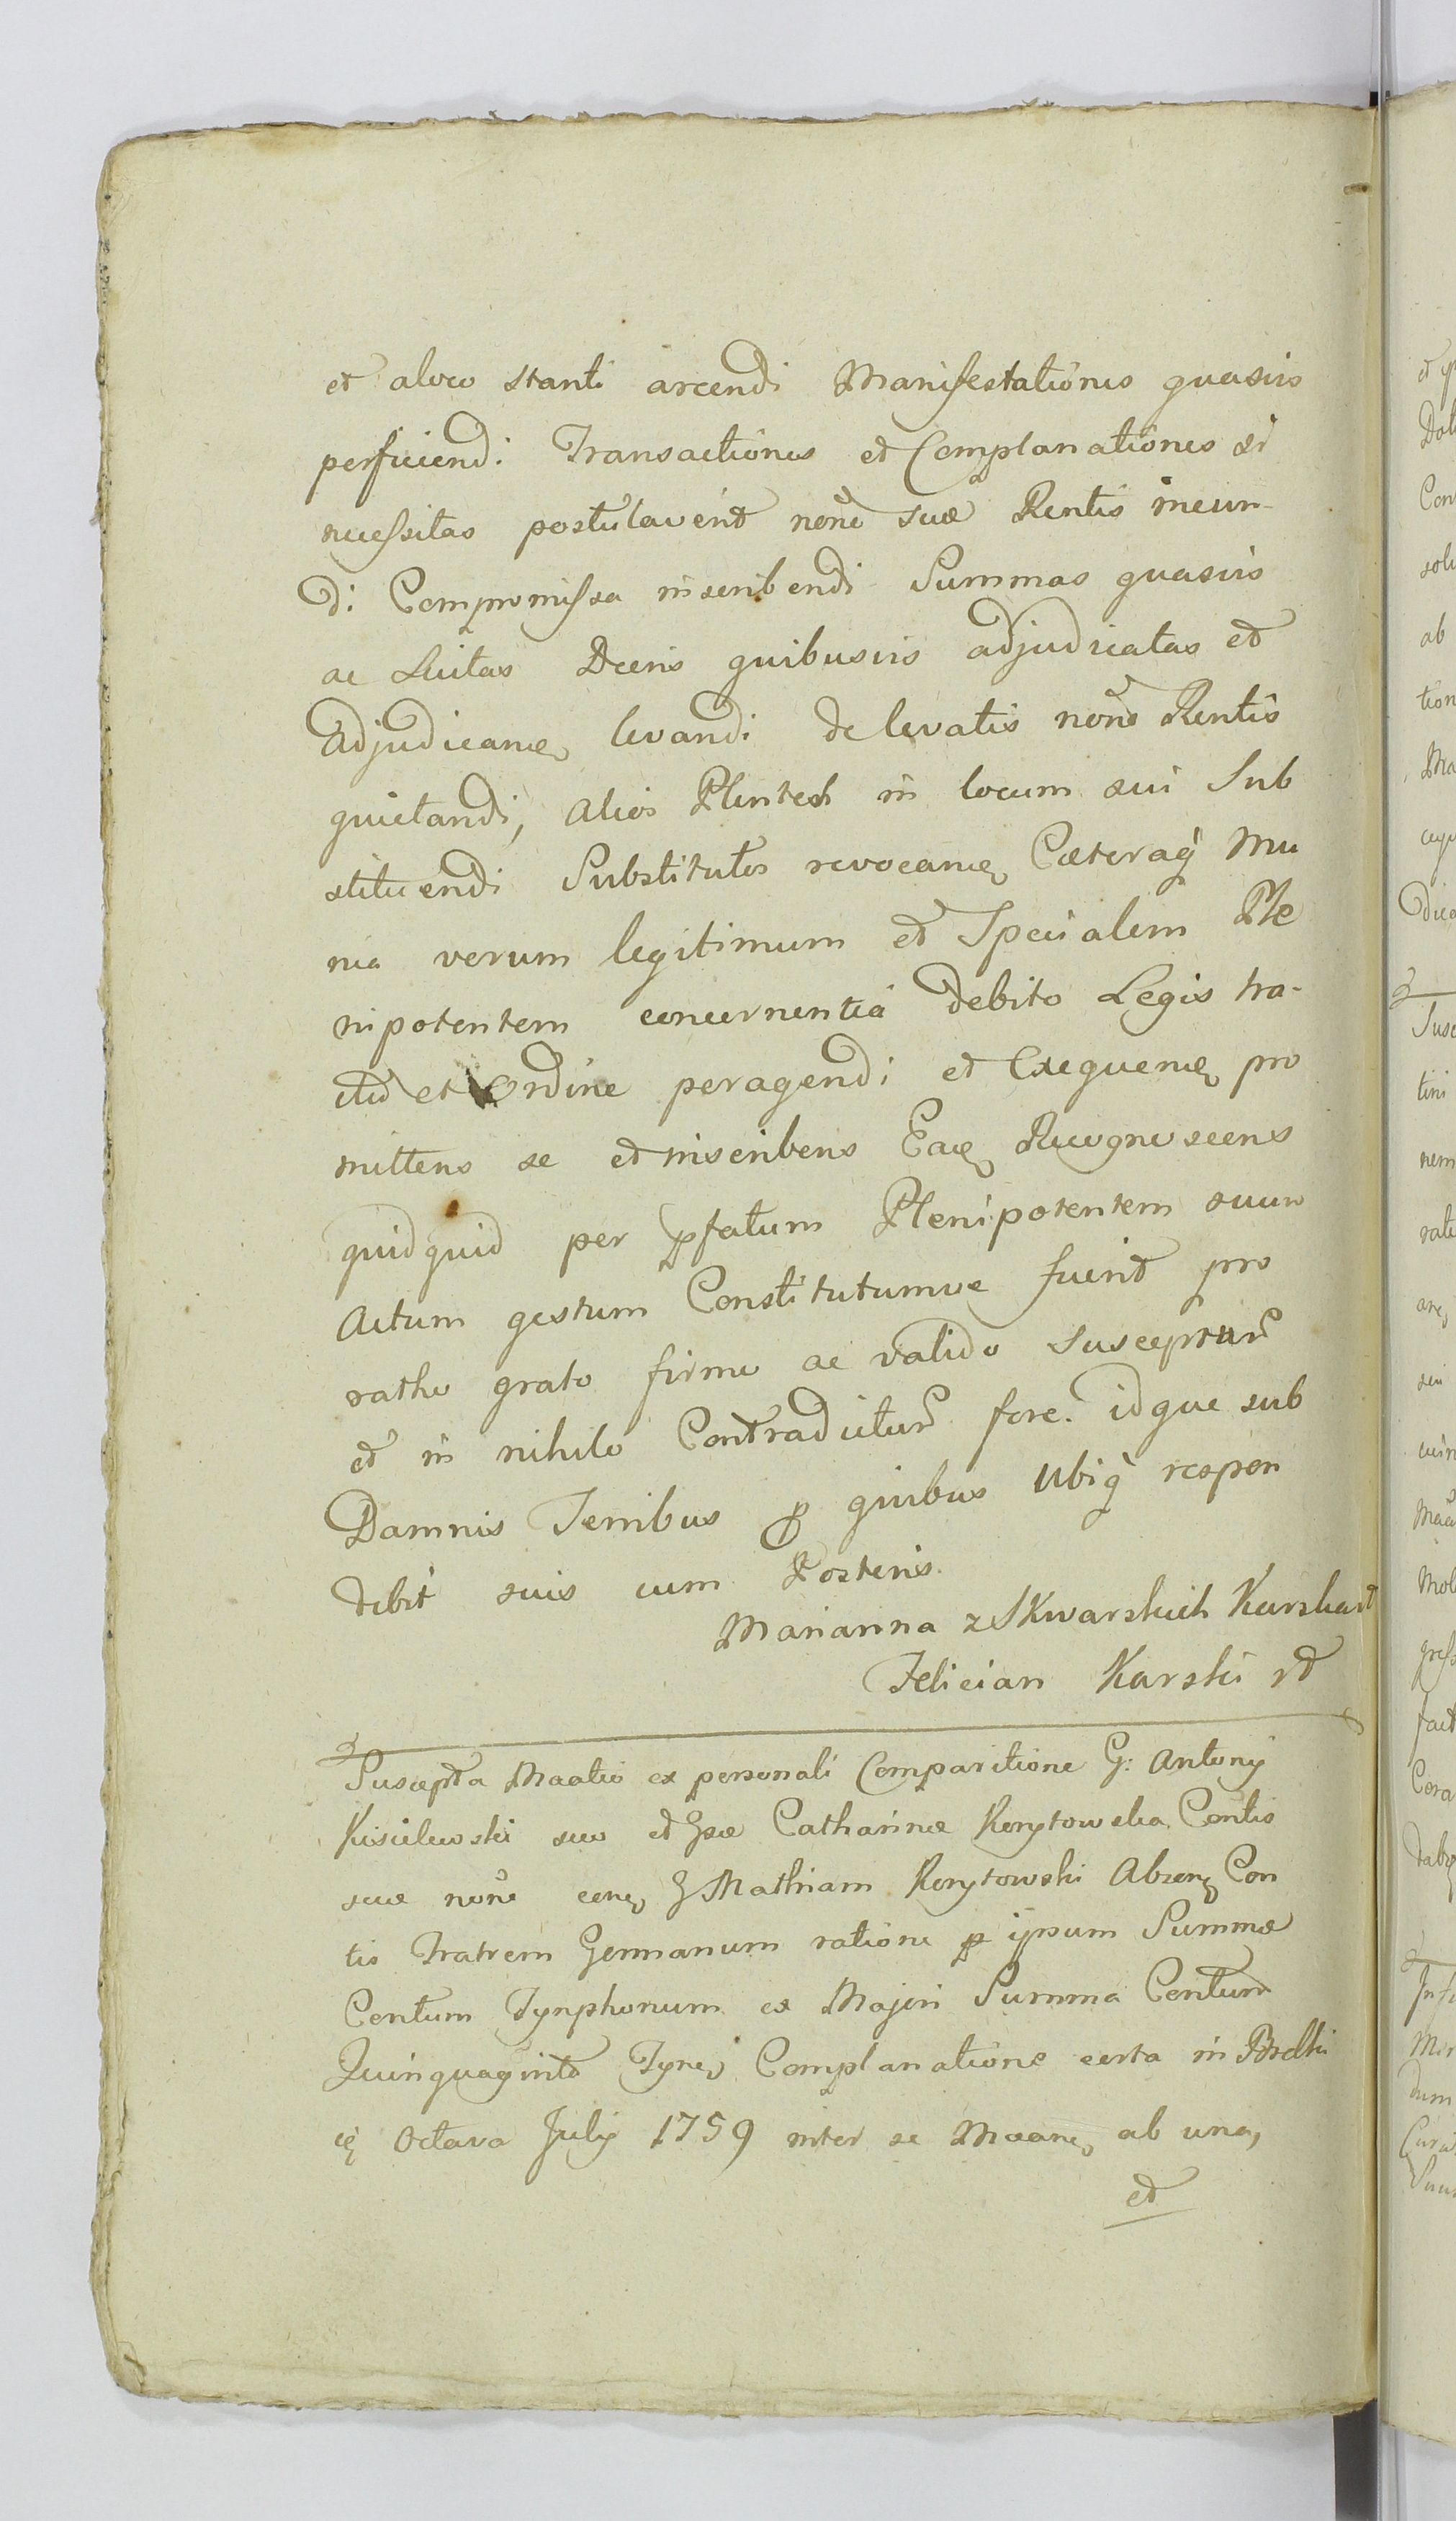 et aloco stanti arcendi Manifestationes quasvis
perficiendi Transactiones et Complanationes si
necessitas postulaverit noñe suæ Rentis ineun-
di Compromissa inscribendi Summas quasvis
ac Luitas Decris quibusvis adjudicatas et
Adjudicane levandi de levatis noñe Rentis
quietandi, alios Plentes in locum sui Sub
stituendi Substitutos revocane Cæteraq mu
nia verum legitimum et Specialem Ple
nipotentem concernentia debito Legis tra-
mite et Ordine peragendi et Exequene pro
mittens se et inscribens Eae Recognoscens
quidquid per pfatum Plenipotentem suum
Actum gestum Constitutumve fuerit pro
ratho grato firmo ac valido Suscepturũ
et in nihilo Contradicturũ fore. idque sub
Damnis Terribus p quibus Ubiq respon
debit suis cum Posteris.
Marianna z Skwarskich Karska
Felician Karski
Suscepta Maatio ex personali Comparitione G: Antony
Kisielewski suo et Gsæ Catharinæ Korytowska Contis
suæ noñe cone G Mathiam Korytowski Absene Con
tis Fratrem Germanum ratione p ipsum Summæ
Centum Tynphonum ex Majori Summa Centum
Quinquaginta Tyne Complanatione certa in
Octava July 1759 inter se Maane ab una,
et